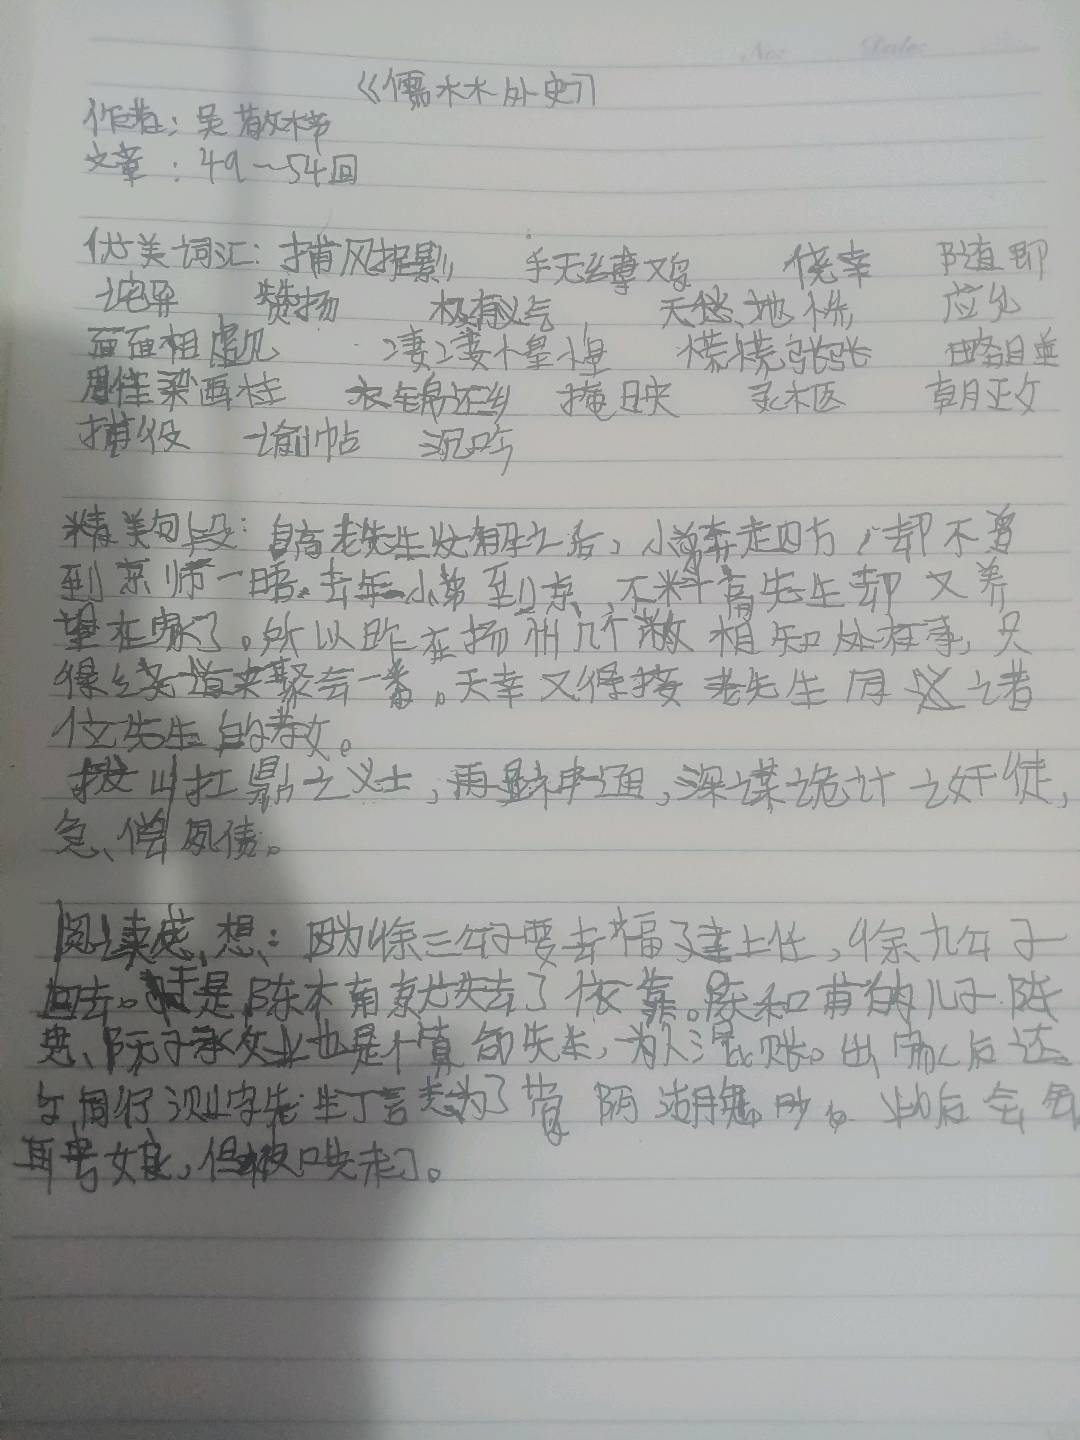 No: Date:
《儒林外史》
作者：吴敬梓
文章：49～54回
优美词汇：捕风捉影 手无缚鸡 侥幸 随即
诧异 赞扬 极有义气 天愁地惨 应允
面面相虚见 凄凄惶惶 慌慌张张
梁画柱 衣锦还乡 掩映 灵柩 朝政
捕役 谕帖 沉吟
精美句段：自高老先生发解之后，小弟奔走四方，却不曾
到京师一晤。去年小弟到京，不料高先生却又养
望在家了。所以昨在扬州几个敝相知处有事，只
得绕道来聚会一番。天幸又得接老先生同诸
位先生的教。
拔山扛鼎之义士，再显神通，深谋诡计之奸徒，
急偿夙债。
阅读感想：因为徐三公子要去福建上任，徐九公子
回去。于是陈木南就失去了依靠。陈和甫的儿子陈
也是个，为人混账。出家后还
同行测字先生丁言志为了 胡 吵 后会
聘娘，但被哄走了。